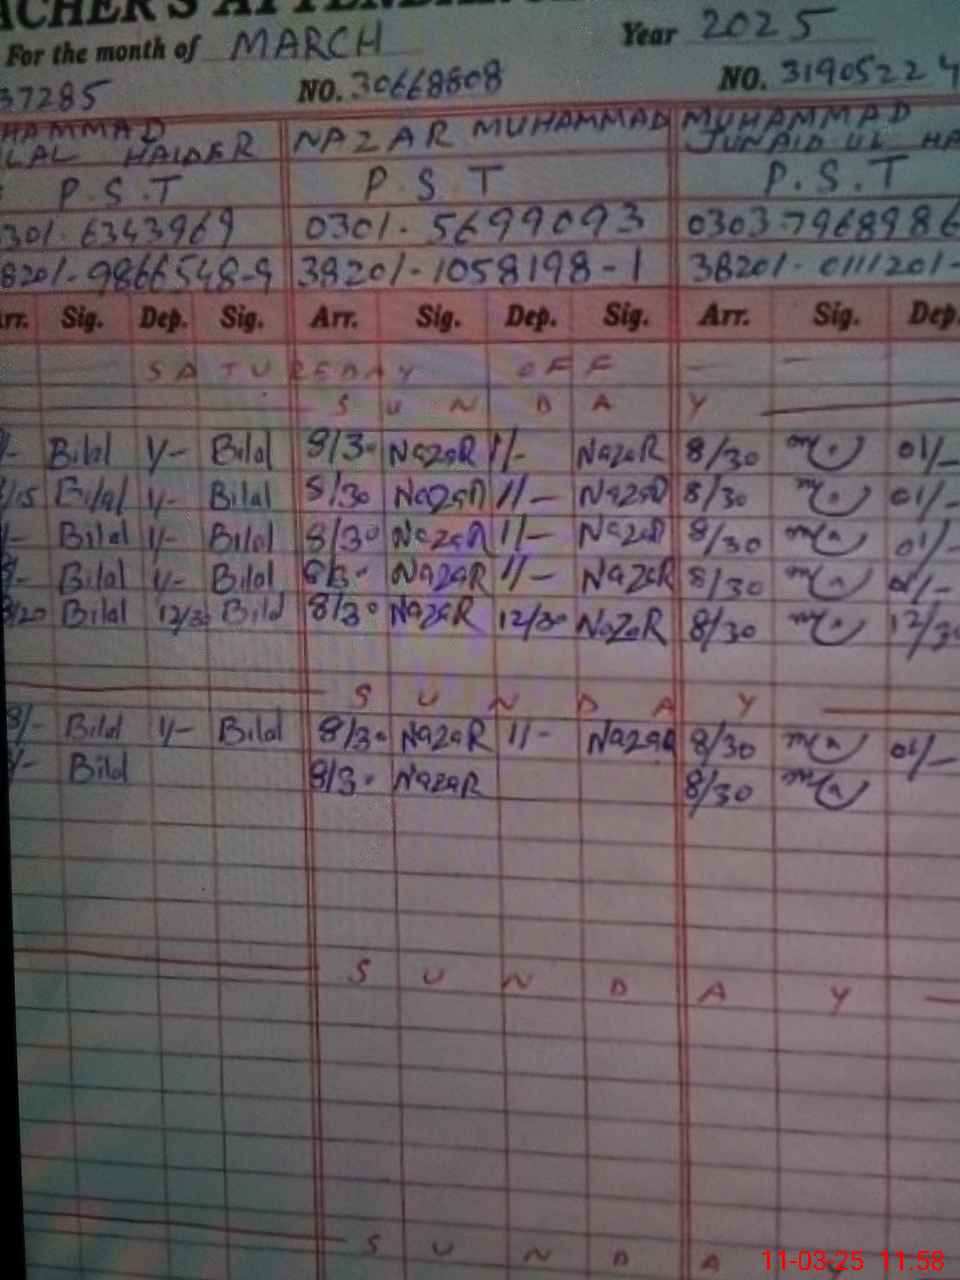 TEACHER'S ATTENDANCE
For the month of MARCH Year 2025
37285 NO. 30668808 NO. 31905224
HAMMAD NAZAR MUHAMMAD MUHAMMAD
LAL HAIDER JUNAID UL HA
P.S.T P.S.T P.S.T
301-6343969 0301-5699093 0303-7968986
8201-9866548-9 38201-1058198-1 38201-0111201-
Arr. Sig. Dep. Sig. Arr. Sig. Dep. Sig. Arr. Sig. Dep.
SATUREDAY OFF
SUNDAY
/- Bilal 1/- Bilal 8/30 NazaR 1/- NazaR 8/30 01/-
/15 Bilal 1/- Bilal 8/30 NazaR 1/- NazaR 8/30 01/-
/- Bilal 1/- Bilal 8/30 NazaR 1/- NazaR 8/30 01/-
/- Bilal 1/- Bilal 8/30 NazaR 1/- NazaR 8/30 01/-
/20 Bilal 12/30 Bilal 8/30 NazaR 12/30 NazaR 8/30 12/30
SUNDAY
8/- Bilal 1/- Bilal 8/30 NazaR 1/- NazaR 8/30 01/-
/- Bilal 8/30 NazaR 8/30
SUNDAY
SUNDAY
11-03-25 11:58